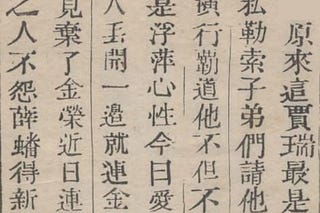 原來這賈瑞最是
私勒索子弟們請他
橫行勒道他不但不
是浮萍心性今日愛
人丟開一邊就連金
見棄了金榮近日連
之人不怨薛蟠得新